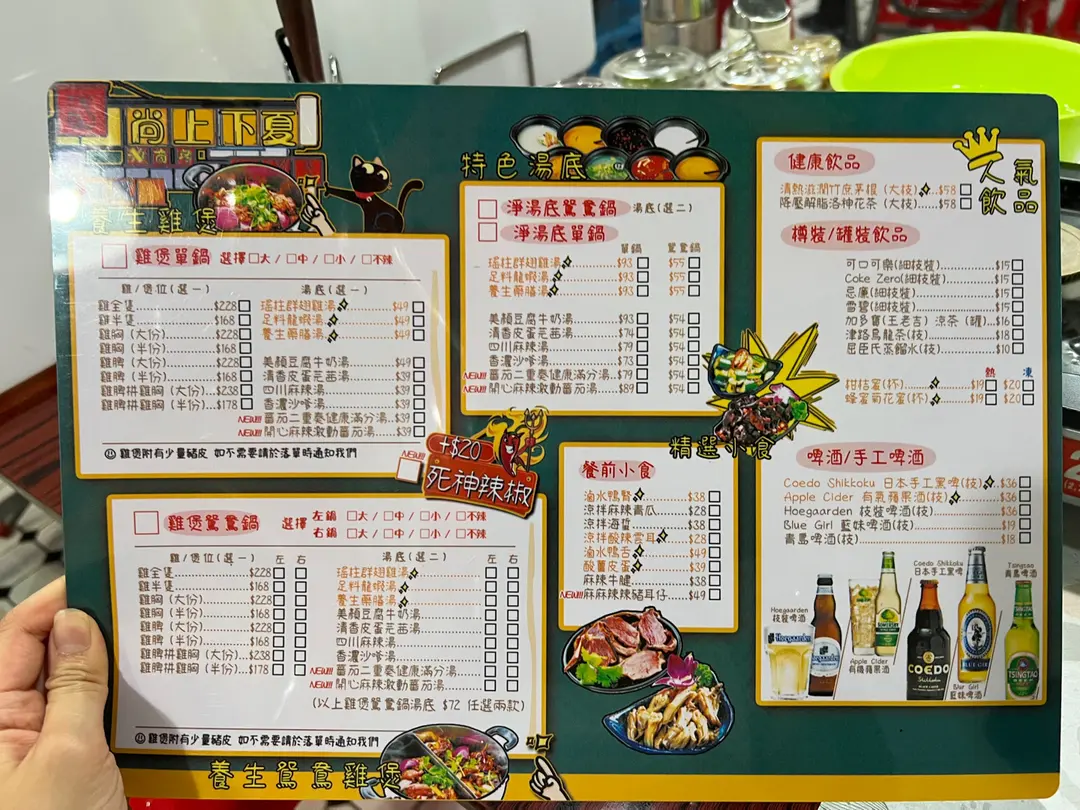 尚上下夏
養生雞煲
雞煲單鍋 選擇 □大 / □中 / □小 / □不辣
雞/煲位(選一) 湯底(選一)
雞全隻 $228
雞半隻 $168
雞胸 (大份) $228
雞胸 (半份) $168
雞髀 (大份) $228
雞髀 (半份) $168
雞髀拼雞胸 (大份) $238
雞髀拼雞胸 (半份) $178
瑤柱群翅雞湯 $49
足料龍蝦湯 $49
養生藥膳湯 $49
美顏豆腐牛奶湯 $49
清香皮蛋芫茜湯 $39
四川麻辣湯 $39
香濃沙嗲湯 $39
NEW!!! 蕃茄二重奏健康滿分湯 $39
NEW!!! 開心麻辣激動蕃茄湯 $39
雞煲附有少量豬皮 如不需要請於落單時通知我們
NEW!!! +$20
死神辣椒
雞煲鴛鴦鍋 選擇
左鍋 □大 / □中 / □小 / □不辣
右鍋 □大 / □中 / □小 / □不辣
雞/煲位(選一) 左 右 湯底(選二) 左 右
雞全隻 $228
雞半隻 $168
雞胸 (大份) $228
雞胸 (半份) $168
雞髀 (大份) $228
雞髀 (半份) $168
雞髀拼雞胸 (大份) $238
雞髀拼雞胸 (半份) $178
瑤柱群翅雞湯
足料龍蝦湯
養生藥膳湯
美顏豆腐牛奶湯
清香皮蛋芫茜湯
四川麻辣湯
香濃沙嗲湯
NEW!!! 蕃茄二重奏健康滿分湯
NEW!!! 開心麻辣激動蕃茄湯
(以上雞煲鴛鴦鍋湯底 $72 任選兩款)
雞煲附有少量豬皮 如不需要請於落單時通知我們
養生鴛鴦雞煲
特色湯底
淨湯底鴛鴦鍋 湯底(選二)
淨湯底單鍋
單鍋 鴛鴦鍋
瑤柱群翅雞湯 $93 $55
足料龍蝦湯 $93 $55
養生藥膳湯 $93 $55
美顏豆腐牛奶湯 $93 $54
清香皮蛋芫茜湯 $74 $54
四川麻辣湯 $79 $54
香濃沙嗲湯 $73 $54
NEW!!! 蕃茄二重奏健康滿分湯 $79 $54
NEW!!! 開心麻辣激動蕃茄湯 $89 $54
精選小食
餐前小食
滷水鴨腎 $38
涼拌麻辣青瓜 $28
涼拌海蜇 $38
涼拌酸辣雲耳 $28
滷水鴨舌 $49
酸薑皮蛋 $39
麻辣牛腱 $38
NEW!!! 麻麻辣辣豬耳仔 $49
人氣飲品
健康飲品
清熱滋潤竹庶茅根 (大枝) $58
降壓解脂洛神花茶 (大枝) $58
樽裝/罐裝飲品
可口可樂(細枝裝) $15
Coke Zero(細枝裝) $15
忌廉(細枝裝) $15
雪碧(細枝裝) $15
加多寶(王老吉) 涼茶 (罐) $16
津路烏龍茶(枝) $18
屈臣氏蒸餾水(枝) $10
熱 凍
柑桔蜜(杯) $19 $20
蜂蜜菊花蜜(杯) $19 $20
啤酒/手工啤酒
Coedo Shikkoku 日本手工黑啤(枝) $36
Apple Cider 有氣蘋果酒(枝) $36
Hoegaarden 枝裝啤酒(枝) $36
Blue Girl 藍妹啤酒(枝) $19
青島啤酒(枝) $18
Hoegaarden
枝裝啤酒
Apple Cider
有氣蘋果酒
Coedo Shikkoku
日本手工黑啤
Blue Girl
藍妹啤酒
Tsingtao
青島啤酒
Hoegaarden
COEDO
Shikkoku
BLUE GIRL
TSINGTAO